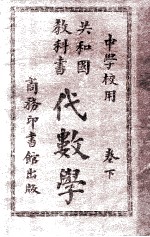 中學校用
共和國
教科書
代數學
卷下
商務印書館出版